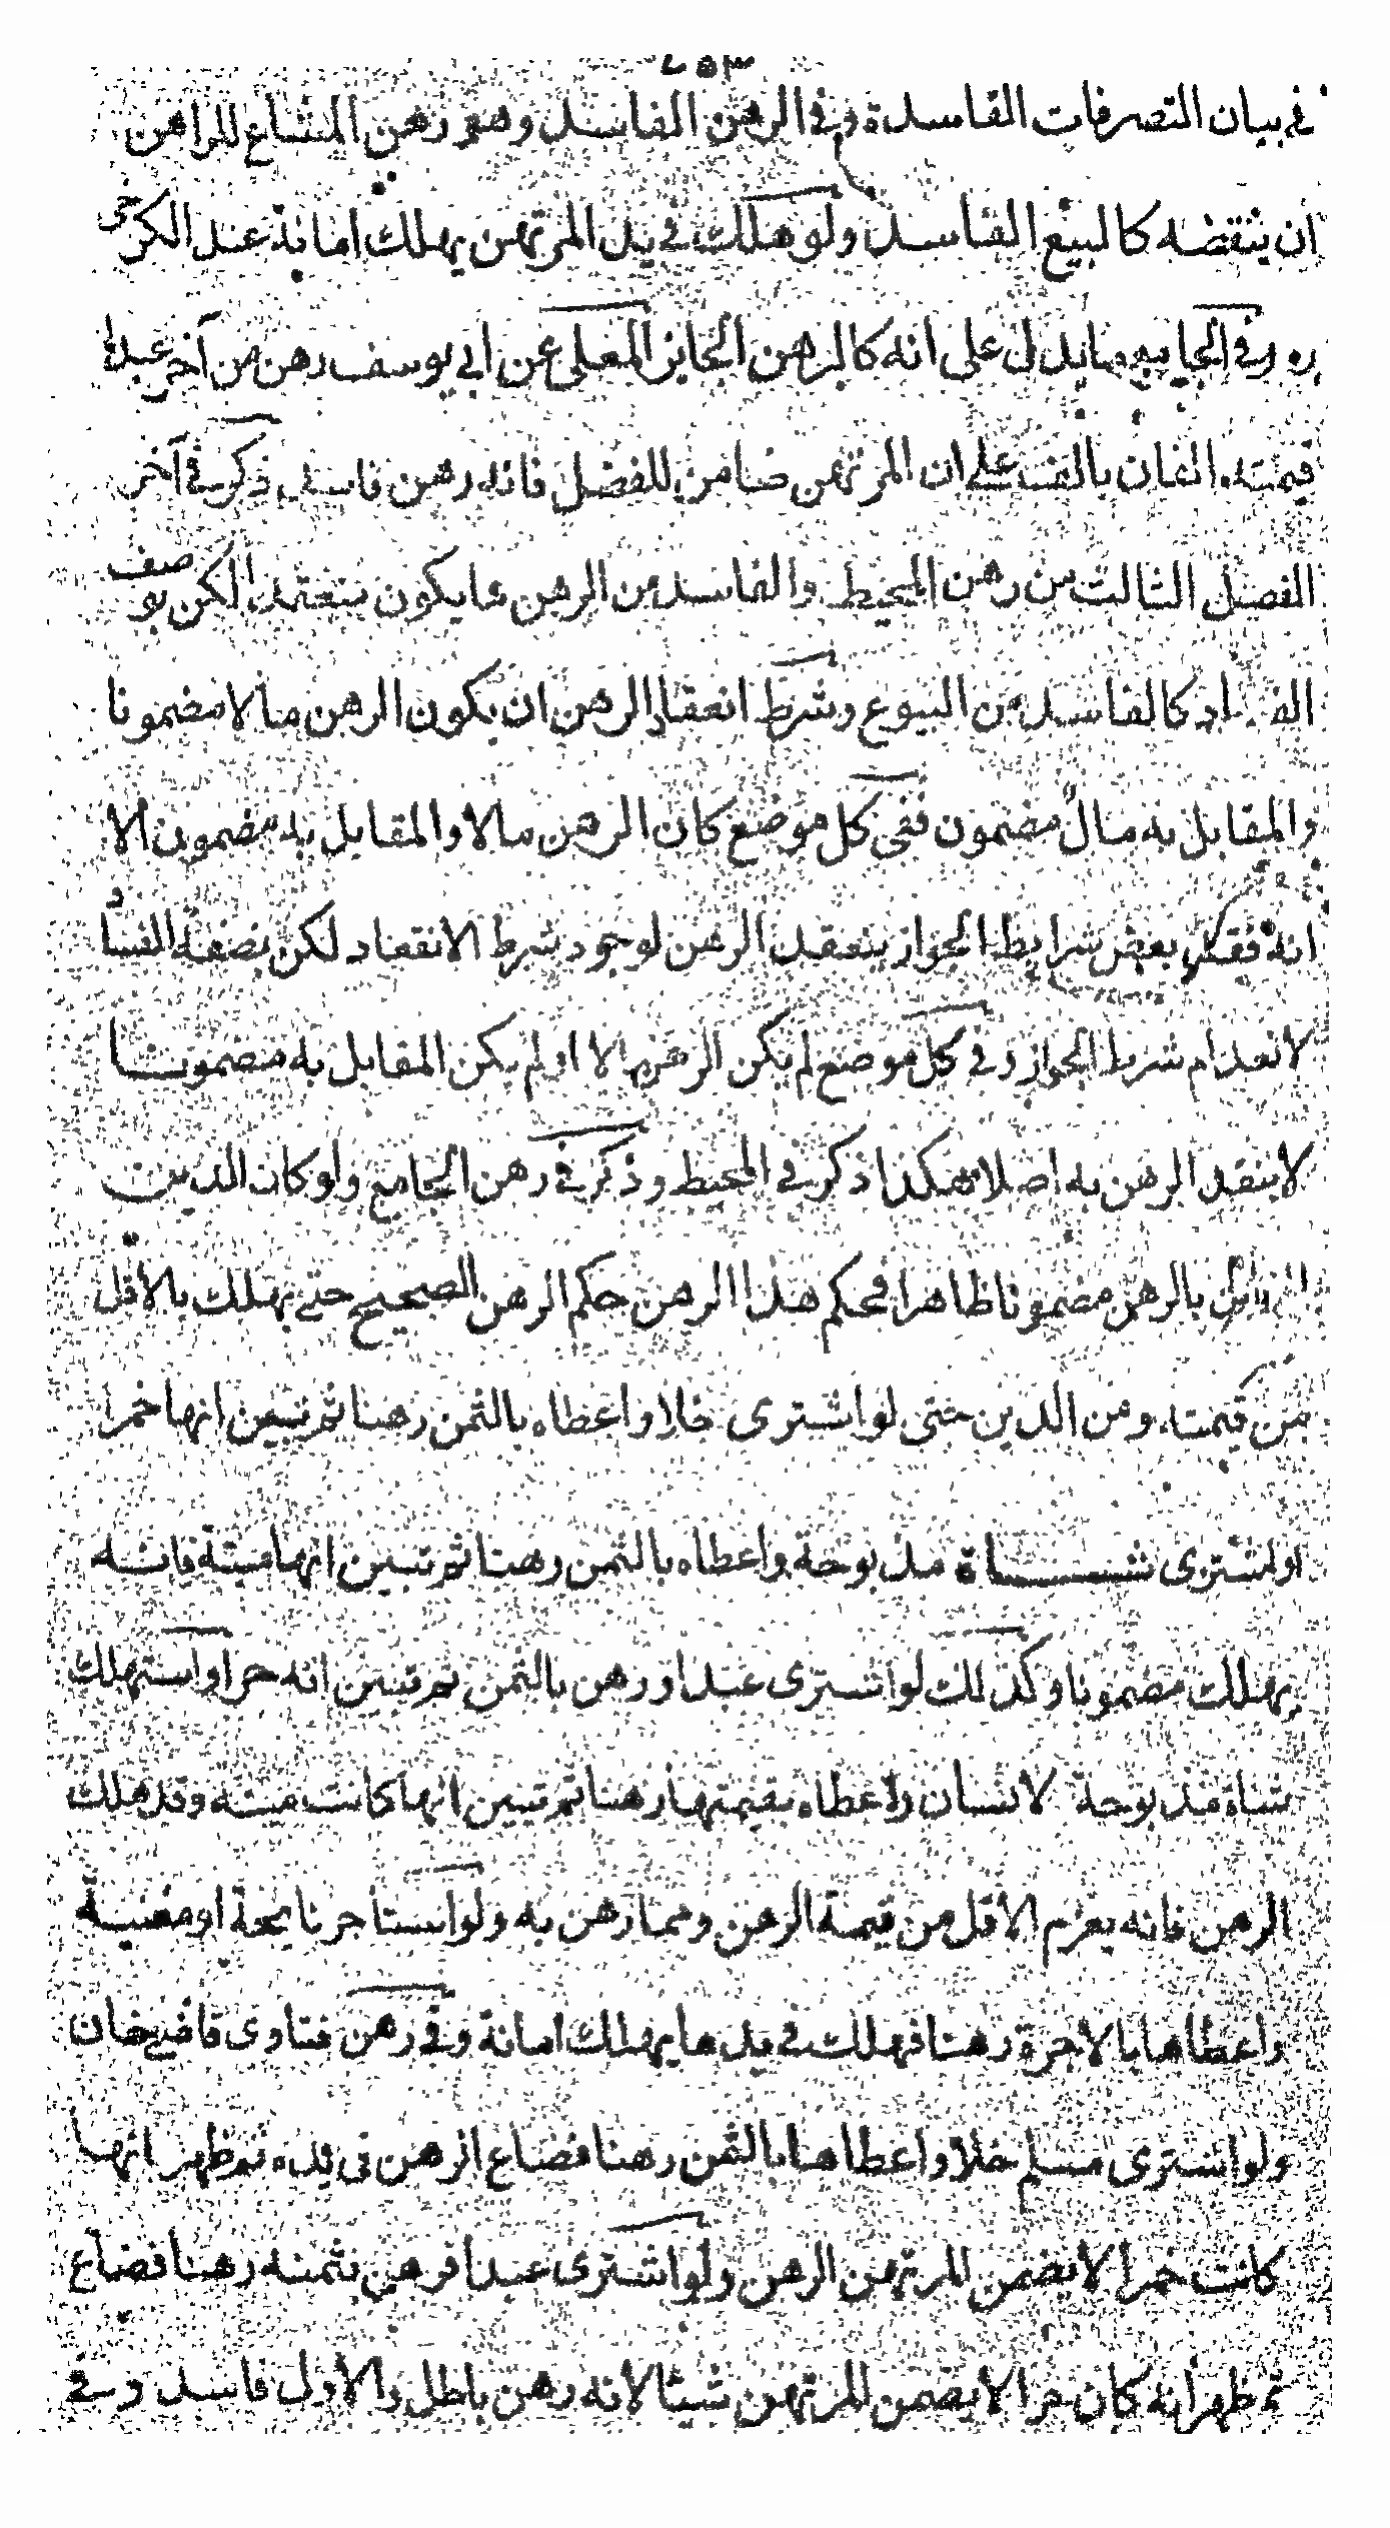 ٢٥٣
في بيان التصرفات الفاسدة وفي الرهن الفاسد وهو رهن المشاع للراهن
ان ينقضه كالبيع الفاسد ولو هلك في يد المرتهن يهلك امانة عند الكرخى
ره وفي الجامع ما يدل على انه كالرهن الجائز المعلى عن ابي يوسف رهن من آخر عبدا
قيمته الفان بالف على ان المرتهن ضامن للفضل فانه رهن فاسد ذكر في آخر
الفصل الثالث من رهن المحيط والفاسد من الرهن ما يكون منعقدا لكن بوصف
الفساد كالفاسد من البيوع وشرط انعقاد الرهن ان يكون الرهن مالا مضمونا
والمقابل به مال مضمون ففى كل موضع كان الرهن مالا والمقابل به مضمون الا
انه فقد بعض شرايط الجواز ينعقد الرهن لوجود شرط الانعقاد لكن بصفة الفساد
لانعدام شرط الجواز وفي كل موضع لم يكن الرهن مالا او لم يكن المقابل به مضمونا
لا ينعقد الرهن به اصلا هكذا ذكر في المحيط وذكر في رهن الجامع ولو كان الدين
المقابل بالرهن مضمونا ظاهرا فحكم هذا الرهن حكم الرهن الصحيح حتى يهلك بالاقل
من قيمته ومن الدين حتى لو اشترى خلا واعطاه بالثمن رهنا ثم تبين انها خمرا
اولشترى شاة مذبوحة واعطاه بالثمن رهنا ثم تبين انها ميتة فانه
يهلك مضمونا وكذلك لو اشترى عبدا ورهن بالثمن ثم تبين انه حر او استهلك
شاة مذبوحة لانسان واعطاه بقيمتها رهنا ثم تبين انها كانت ميتة وقد هلك
الرهن فانه يغرم الاقل من قيمة الرهن ومما رهن به ولو استاجر نايحة او مغنية
واعطاها بالاجرة رهنا فهلك في يدها يهلك امانة وفي رهن فتاوى قاضيخان
ولو اشترى مسلم خلا واعطاها بالثمن رهنا فضاع الرهن في يده ثم ظهر انها
كانت خمرا لا يضمن المرتهن الرهن ولو اشترى عبدا فرهن بثمنه رهنا فضاع
ثم ظهر انه كان حرا لا يضمن المرتهن شيئا لانه رهن باطل والاول فاسد وفي